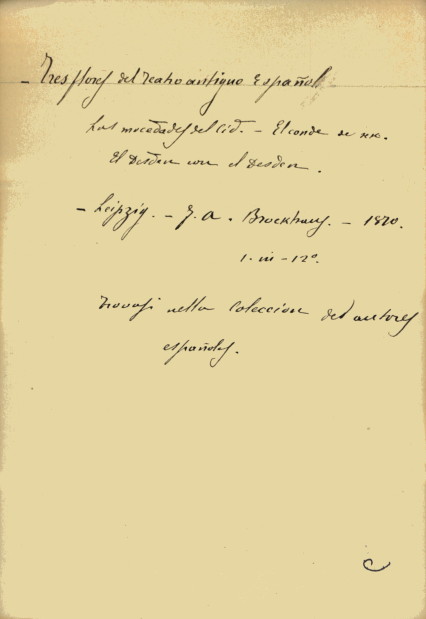 - Tres flores del Teatro antiguo Español
Las mocedades del Cid. - El conde de xx.
El Desden con el Desden.
- Leipzig. - F. A. Brockhaus. - 1870.
1. in - 12°.
Trovasi nella Coleccion del autores
españoles.